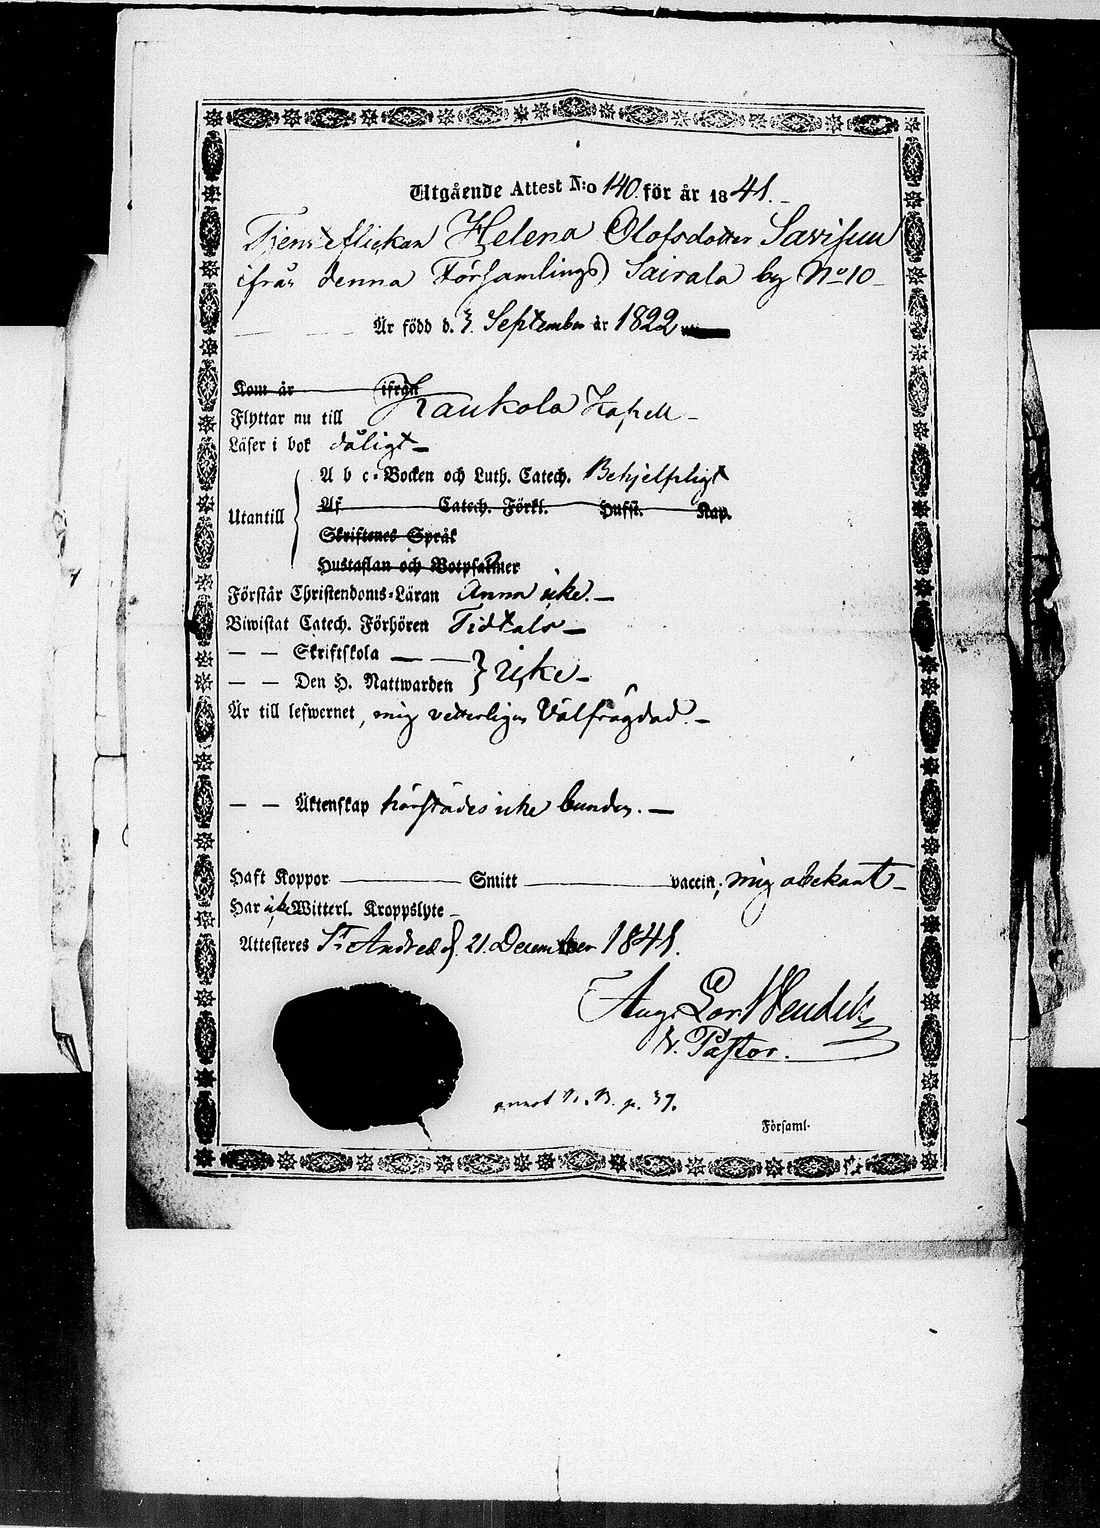 Utgående Attest N:o 140. för år 1841.
Tjensteflickan Helena Olofsdotter Savisuu
ifrån denna Församlings Sairala by No 10
Är född d. 3 September år 1822
Kom år ifrån
Flyttar nu till Kaukola Kapell
Läser i bok dåligt
A b c-Bocken och Luth. Catech. Behjelpligt
Utantill
Af Catech. Förkl. Hufst. Kap.
Skriftenes Språk
Hustaflan och Botpsalmer
Förstår Christendoms-Läran Ännu icke.
Biwistat Catech. Förhören Tidtals
— — Skriftskola — —
— — Den H. Nattwarden } icke
Är till lefwernet, mig vetterligen Välfrägdad.
— — Äktenskap härstädes icke bunden.
Haft Koppor Smitt vaccin; mig obekant
Har icke Witterl. Kroppslyte
Attesteres St Andreæ d. 21. December 1841.
Aug. Lor.
V. Pastor.
annot p. 37.
Församl.